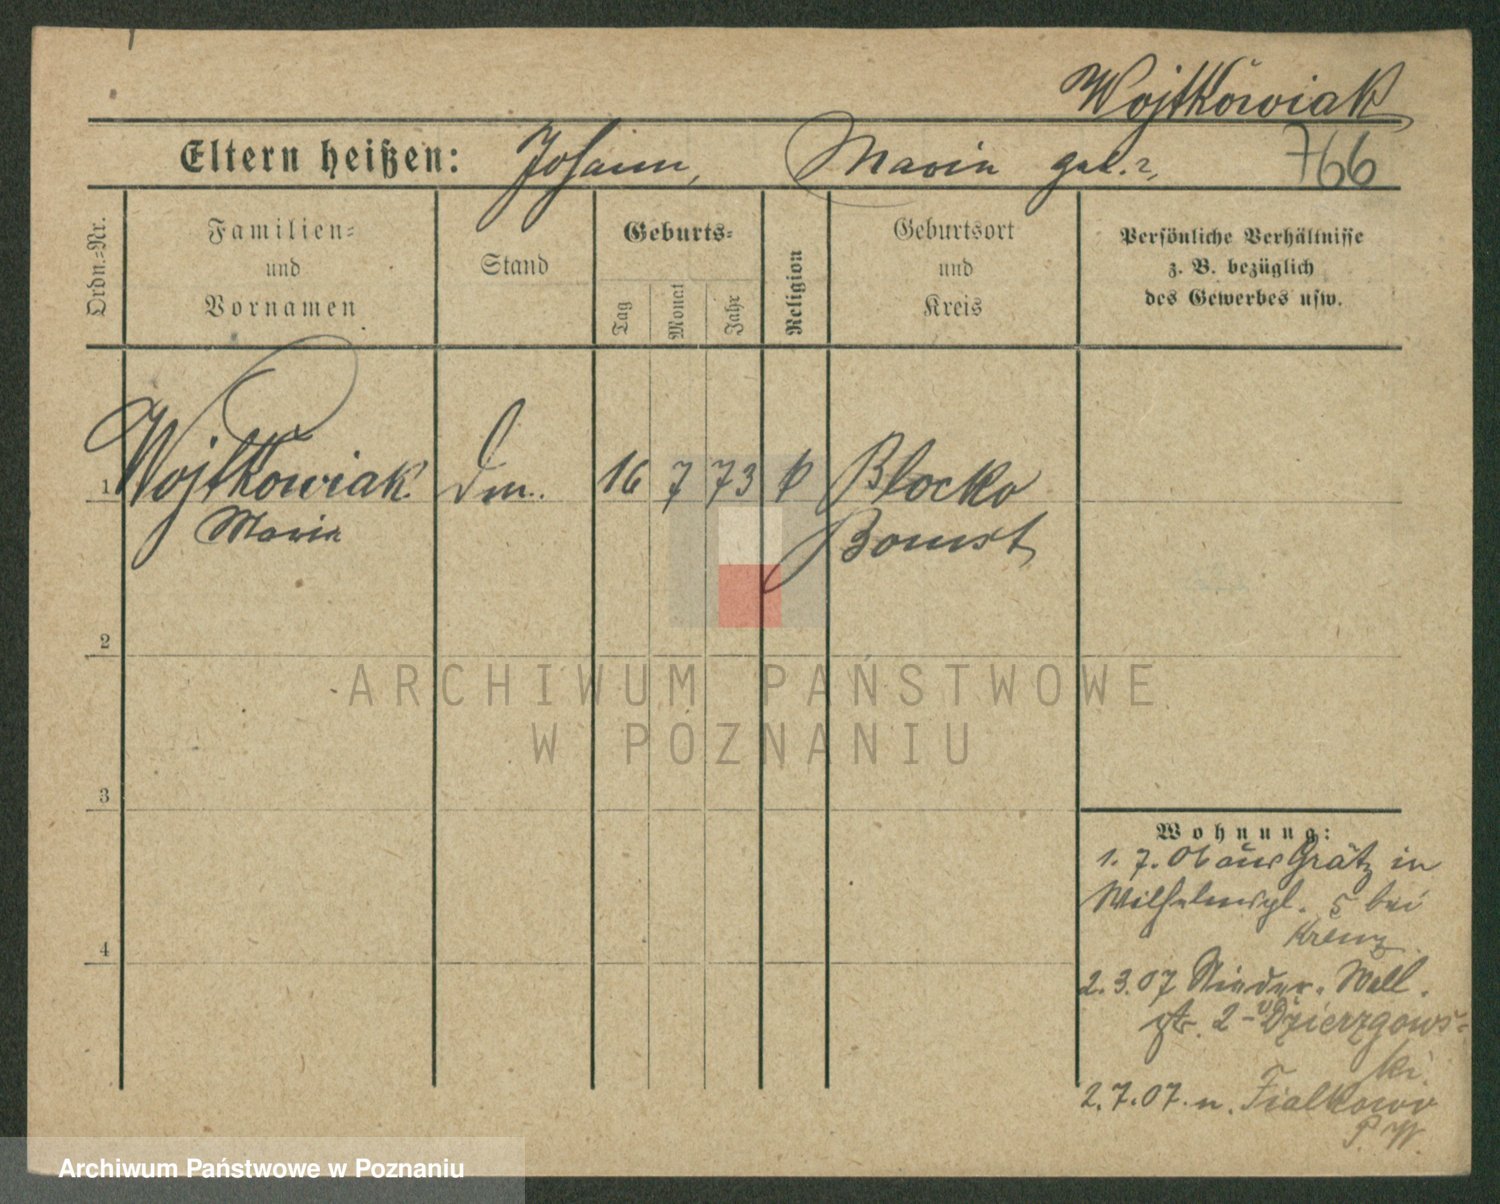 Wojtkówiak
Eltern heißen: Johann, Maria geb. ?, 766
Ordn.=Nr.
Familien=
und
Vornamen
Stand
Geburts=
Tag
Monat
Jahr
Religion
Geburtsort
und
Kreis
Persönliche Verhältnisse
z. B. bezüglich
des Gewerbes usw.
1 Wojtkowiak 16 7 73 k Blocko
Maria Bomst
2
ARCHIWUM PAŃSTWOWE
W POZNANIU
3
Wohnung:
1. 7. 06 aus Grätz in
Wilhelmspl. 5 bei
Krenz
4
2. 3. 07 Nieder. Wall.
str. 2 - Dzierzgows=
ki.
2. 7. 07. n. Fialkowo
P. W.
Archiwum Państwowe w Poznaniu